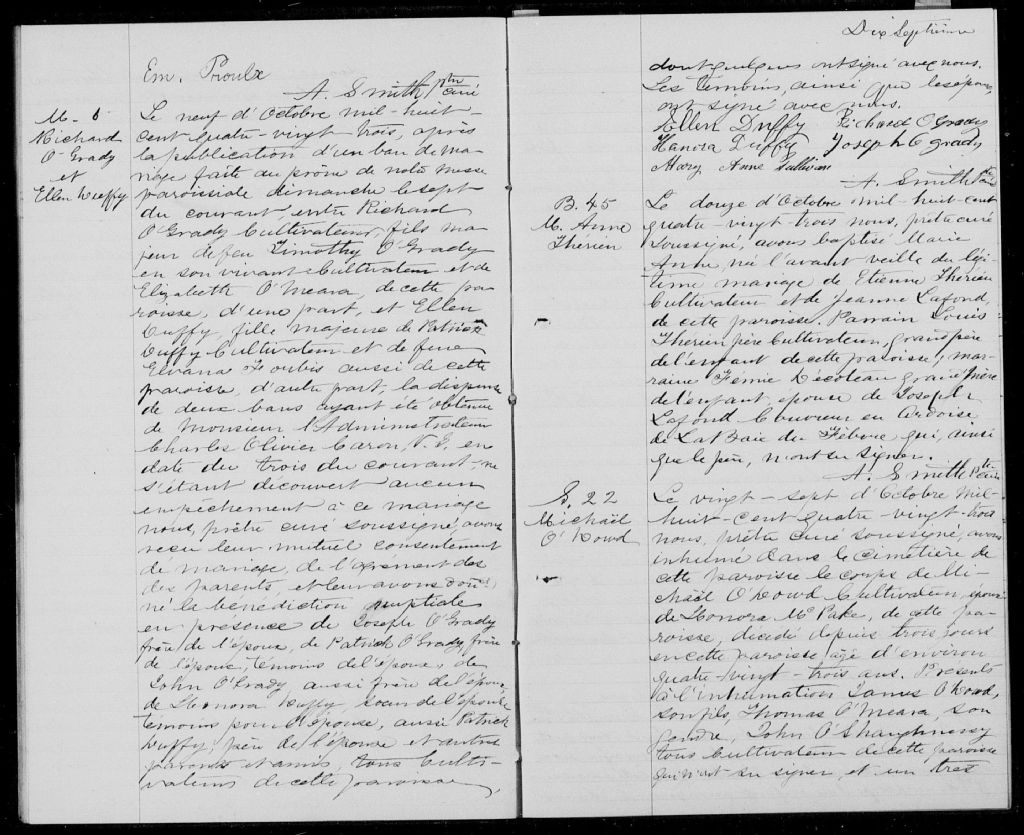 Em. Proulx
A. Smith Ptre
curé
M. 8
Richard
O'Grady
et
Ellen Duffy
Le neuf d'Octobre mil-huit-
cent quatre-vingt trois, après
la publication d'un ban de ma-
riage faite au prône de notre messe
paroissiale dimanche le sept
du courant, entre Richard
O'Grady Cultivateur, fils ma-
jeur de feu Timothy O'Grady
en son vivant Cultivateur et de
Elizabeth O'Meara, de cette pa-
roisse, d'une part, et Ellen
Duffy, fille majeure de Patrick
Duffy Cultivateur et de feue
aussi de cette
paroisse, d'autre part, la dispense
de deux bans ayant été obtenue
de Monsieur l'Administrateur
Charles Olivier Caron, V. G. en
date du trois du courant, ne
s'étant découvert aucun
empêchement à ce mariage
nous, prêtre curé soussigné, avons
reçu leur mutuel consentement
de mariage, de l'agrément des
des parents, et leur avons don-
né la bénédiction nuptiale
en présence de Joseph O'Grady
frère de l'époux, de Patrick O'Grady, frère
de l'époux, témoins de l'époux, de
John O'Grady aussi frère de l'époux,
de Leonora Duffy, soeur de l'épouse
témoins pour l'épouse, aussi Patrick
Duffy, père de l'épouse et autres
parents et amis, tous Culti-
vateurs de cette paroisse,
Dix Septième
dont quelques ont signé avec nous.
Les témoins, ainsi que les époux,
ont signé avec nous.
Ellen Duffy Richard O Grady
Hanora Duffy Joseph O Grady
Mary Anne Sullivan
A. Smith Ptre
curé
B. 45
M. Anne
Thérien
Le douze d'Octobre mil-huit-cent
quatre-vingt trois nous, prêtre curé
soussigné, avons baptisé Marie
Anne, née l'avant veille du légi-
time mariage de Etienne Thérien
Cultivateur et de Jeanne Lafond,
de cette paroisse. Parrain Louis
Thérien père Cultivateur, grand père
de l'enfant de cette paroisse; mar-
raine Fémie Décoteau grand'mère
de l'enfant, épouse de Joseph
Lafond Couvreur en Ardoise
de La Baie du Febvre qui, ainsi
que le père, n'ont su signer.
A. Smith Ptre
curé
S. 22
Michaël
O'Dowd
Le vingt-sept d'Octobre mil-
huit-cent quatre-vingt-trois
nous, prêtre curé soussigné, avons
inhumé dans le cimetière de
cette paroisse le corps de Mi-
chaël O'Dowd Cultivateur, époux
de Honora McPake, de cette pa-
roisse, décédé depuis trois jours
en cette paroisse âgé d'environ
quatre-vingt-trois ans. Présents
à l'inhumation James O'Dowd,
son fils, Thomas O'Meara, son
gendre, John O'Shaughnessy
tous Cultivateurs de cette paroisse
qui n'ont su signer, et un très